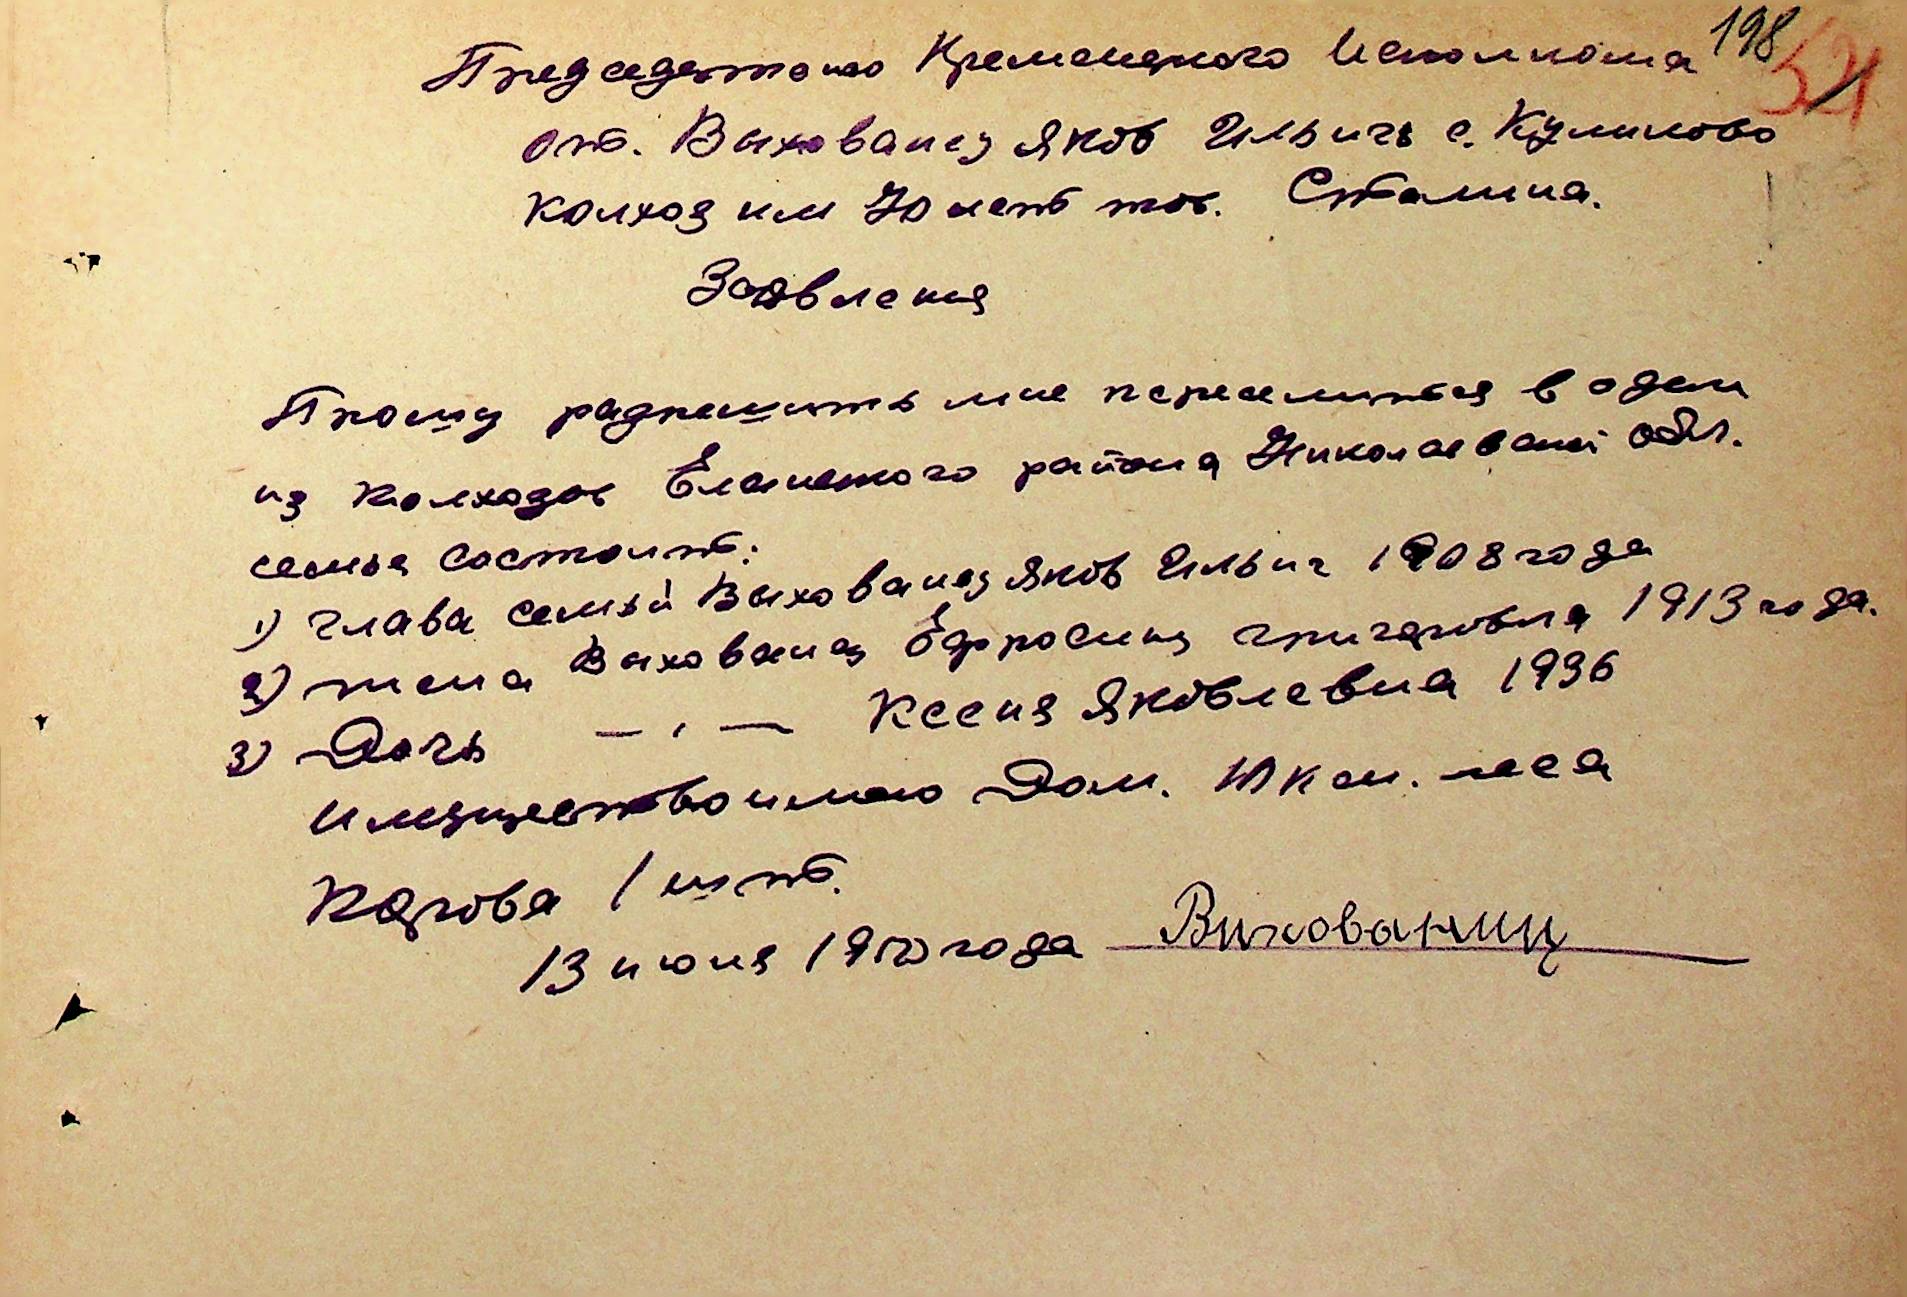 198
521
Председателю Кременецкого Исполкома
от. Выхованец Яков Ильичь с. Куликово
колхоз им 70 лет тов. Сталина.
Заявления
Прошу разрешить мне переселится в один
из колхозов Еланецкого района Николаевской обл.
семья состоит:
1) глава семьи Выхованец Яков Ильич 1908 года
2) жена Выхованец Ефросиня григоровна 1913 года.
3) Дочь — " — Ксеня Яковлевна 1936
имущество имею Дом. 10 к см. леса
Карова 1 шт.
13 июня 1950 года Вихованиц